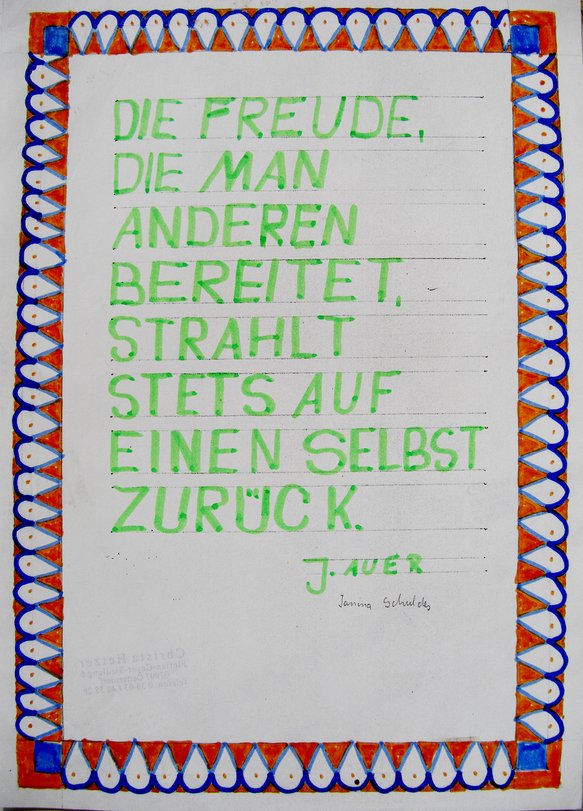 DIE FREUDE,
DIE MAN
ANDEREN
BEREITET,
STRAHLT
STETS AUF
EINEN SELBST
ZURÜCK.
J. AUER
Janina
Christa Hetzer